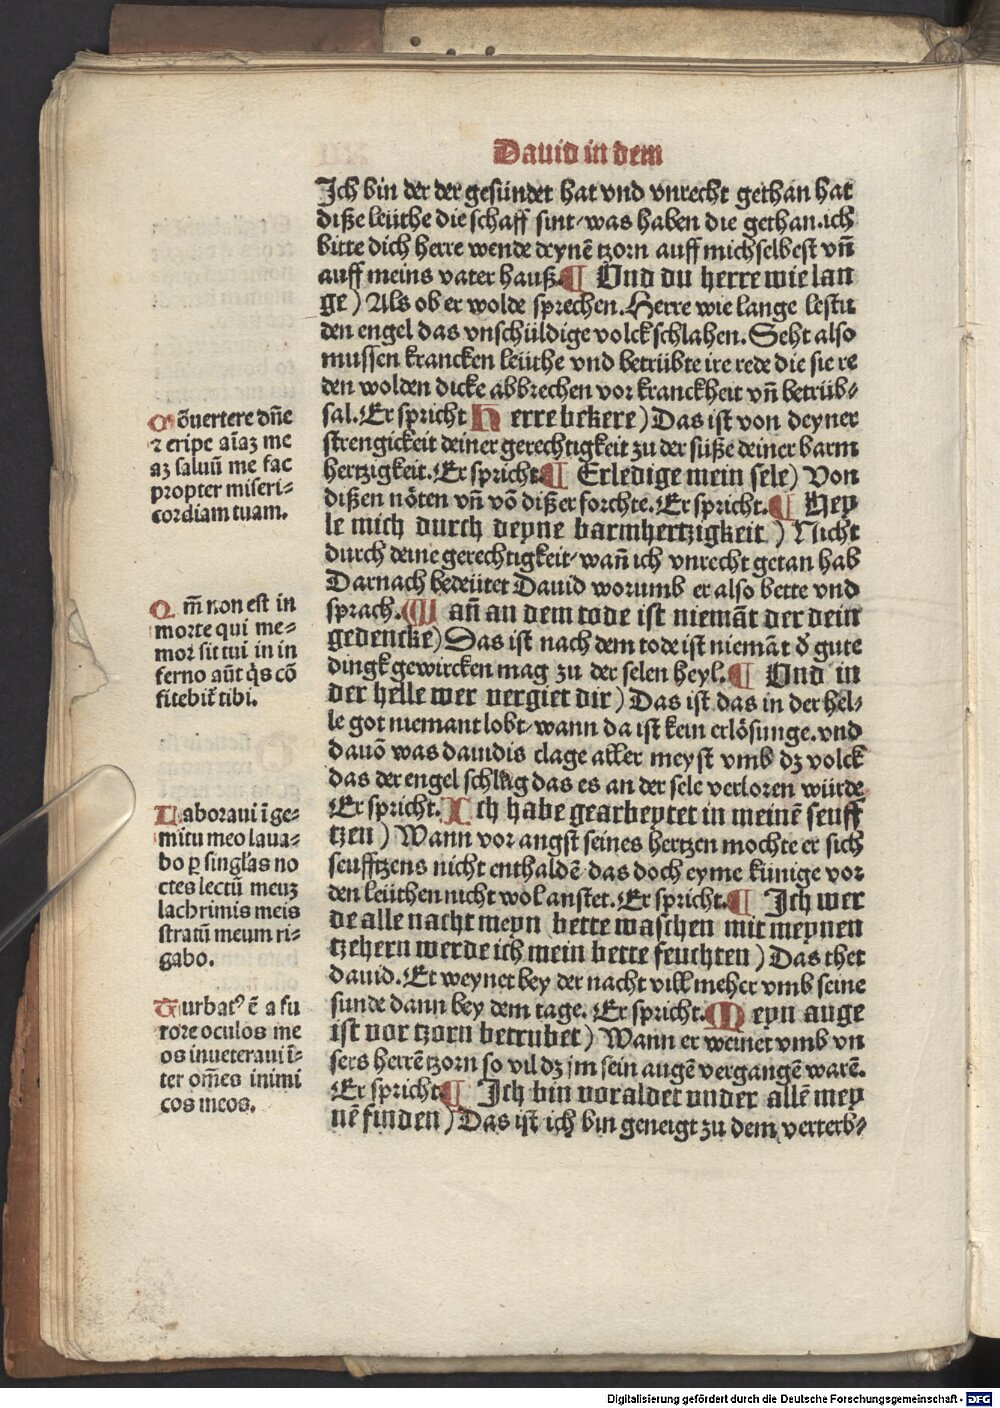 Dauid in dem
Ich bin der der gesündet hat vnd vnrecht gethan hat
diße leüthe die schaff sint/was haben die gethan.ich
bitte dich herre wende deynē tzorn auff michselbest vn̄
auff meins vater hauß.¶ Vnd du herre wie lan
ge) Als ob er wolde sprechen.Herre wie lange lestu
den engel das vnschüldige volck schlahen.Seht also
mussen krancken leüthe vnd betrübte ire rede die sie re
den wolden dicke abbrechen vor kranckheit vn̄ betrüb⸗
sal.Er spricht Herre bekere) Das ist von deyner
strengickeit deiner gerechtigkeit zu der süße deiner barm
hertzigkeit.Er spricht.¶ Erledige mein sele) Von
dißen nöten vn̄ vō dißer forchte.Er spricht.¶ Hey
le mich durch deyne barmhertzigkeit) Nicht
durch deine gerechtigkeit/wan̄ ich vnrecht getan hab
Darnach bedeütet Dauid worumb er also bette vnd
sprach.Wan̄ an dem tode ist niemāt der dein
gedencke) Das ist nach dem tode ist niemāt d̄ gute
dingk gewircken mag zu der selen heyl.¶ Vnd in
der helle wer vergiet dir) Das ist das in der hel⸗
le got niemant lobt/wann da ist kein erlösunge.vnd
dauō was dauidis clage aller meyst vmb dz volck
das der engel schlug das es an der sele verloren würde
Er spricht.Ich habe gearbeytet in meinē seuff
tzen) Wann vor angst seines hertzen mochte er sich
seufftzens nicht enthaldē/das doch eyme künige vor
den leüthen nicht wol anstet.Er spricht.¶ Ich wer
de alle nacht meyn bette waschen mit meynen
tzehern werde ich mein bette feuchten) Das thet
dauid.Er weynet bey der nacht vill meher vmb seine
sunde dann bey dem tage.Er spricht.Meyn auge
ist vor tzorn betrubet) Wann er weinet vmb vn
sers herrē tzorn so vil dz jm sein augē vergangē warē.
Er spricht¶ Ich bin voraldet vnder allē mey
nē finden) Das ist ich bin geneigt zu dem verterb⸗
Cōuertere dn̄e
⁊ eripe aīaꝫ me
aꝫ saluū me fac
propter miseri⸗
cordiam tuam.
Qm̄ non est in
morte qui me⸗
mor sit tui in in
ferno aūt q̇s cō
fitebit̄ tibi.
Laboraui ī ge⸗
mitu meo laua⸗
bo ꝑ singl'as no
ctes lectū meuꝫ
lachrimis meis
stratū meum ri⸗
gabo.
Turbatꝰ ē a fu
rore oculos me
os inueteraui ī⸗
ter om̄es inimi
cos meos.
Digitalisierung gefördert durch die Deutsche Forschungsgemeinschaft - DFG